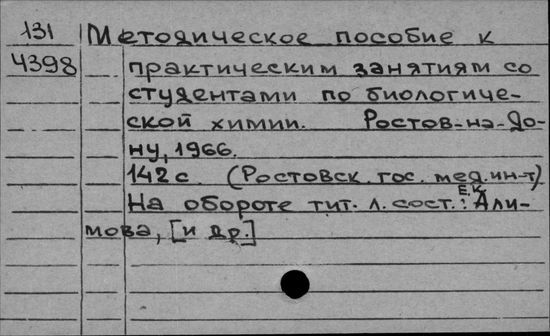 131 Методическое пособие к
4398 практическим занятиям со
студентами по биологиче-
ской химии. Ростов-на-До-
ну, 1966.
142 с. (Ростовск. гос. мед. ин-т)
На обороте тит. л. сост.: Е.К. Али-
мова, [и др.]